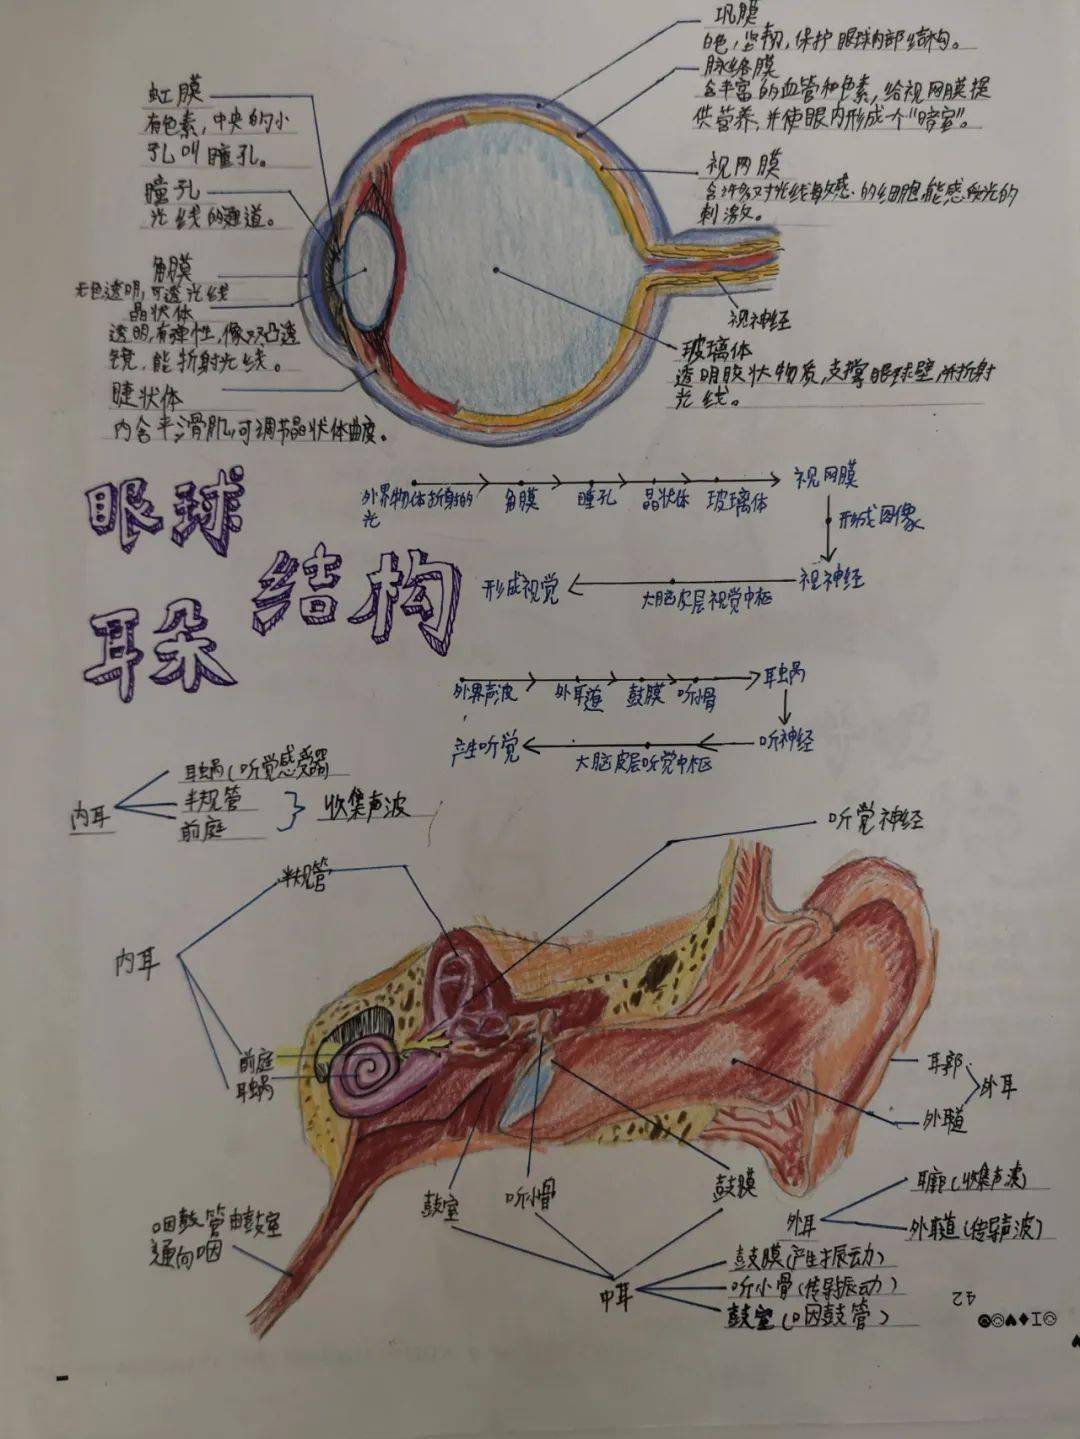 巩膜
白色，坚韧，保护眼球内部结构。
脉络膜
含丰富的血管和色素，给视网膜提
供营养，并使眼内形成一个“暗室”。
虹膜
有色素，中央的小
孔叫瞳孔。
瞳孔
光线的通道。
视网膜
含许多对光线敏感的细胞，能感受光的
刺激。
角膜
无色透明，可透光线
晶状体
透明，有弹性，像双凸透
镜，能折射光线。
睫状体
内含平滑肌，可调节晶状体曲度。
视神经
玻璃体
透明胶状物质，支撑眼球壁，并折射
光线。
眼球
耳朵
结构
外界物体折射的
光
角膜
瞳孔
晶状体
玻璃体
视网膜
形成图像
视神经
大脑皮层视觉中枢
形成视觉
外界声波
外耳道
鼓膜
听小骨
耳蜗
听神经
大脑皮层听觉中枢
产生听觉
内耳
耳蜗（听觉感受器
半规管
前庭
收集声波
听觉神经
半规管
内耳
前庭
耳蜗
耳郭
外耳
外耳道
鼓室
听小骨
鼓膜
咽鼓管由鼓室
通向咽
中耳
鼓膜（产生振动）
听小骨（传导振动）
鼓室（咽鼓管）
外耳
耳廓（收集声波）
外耳道（传导声波）
42